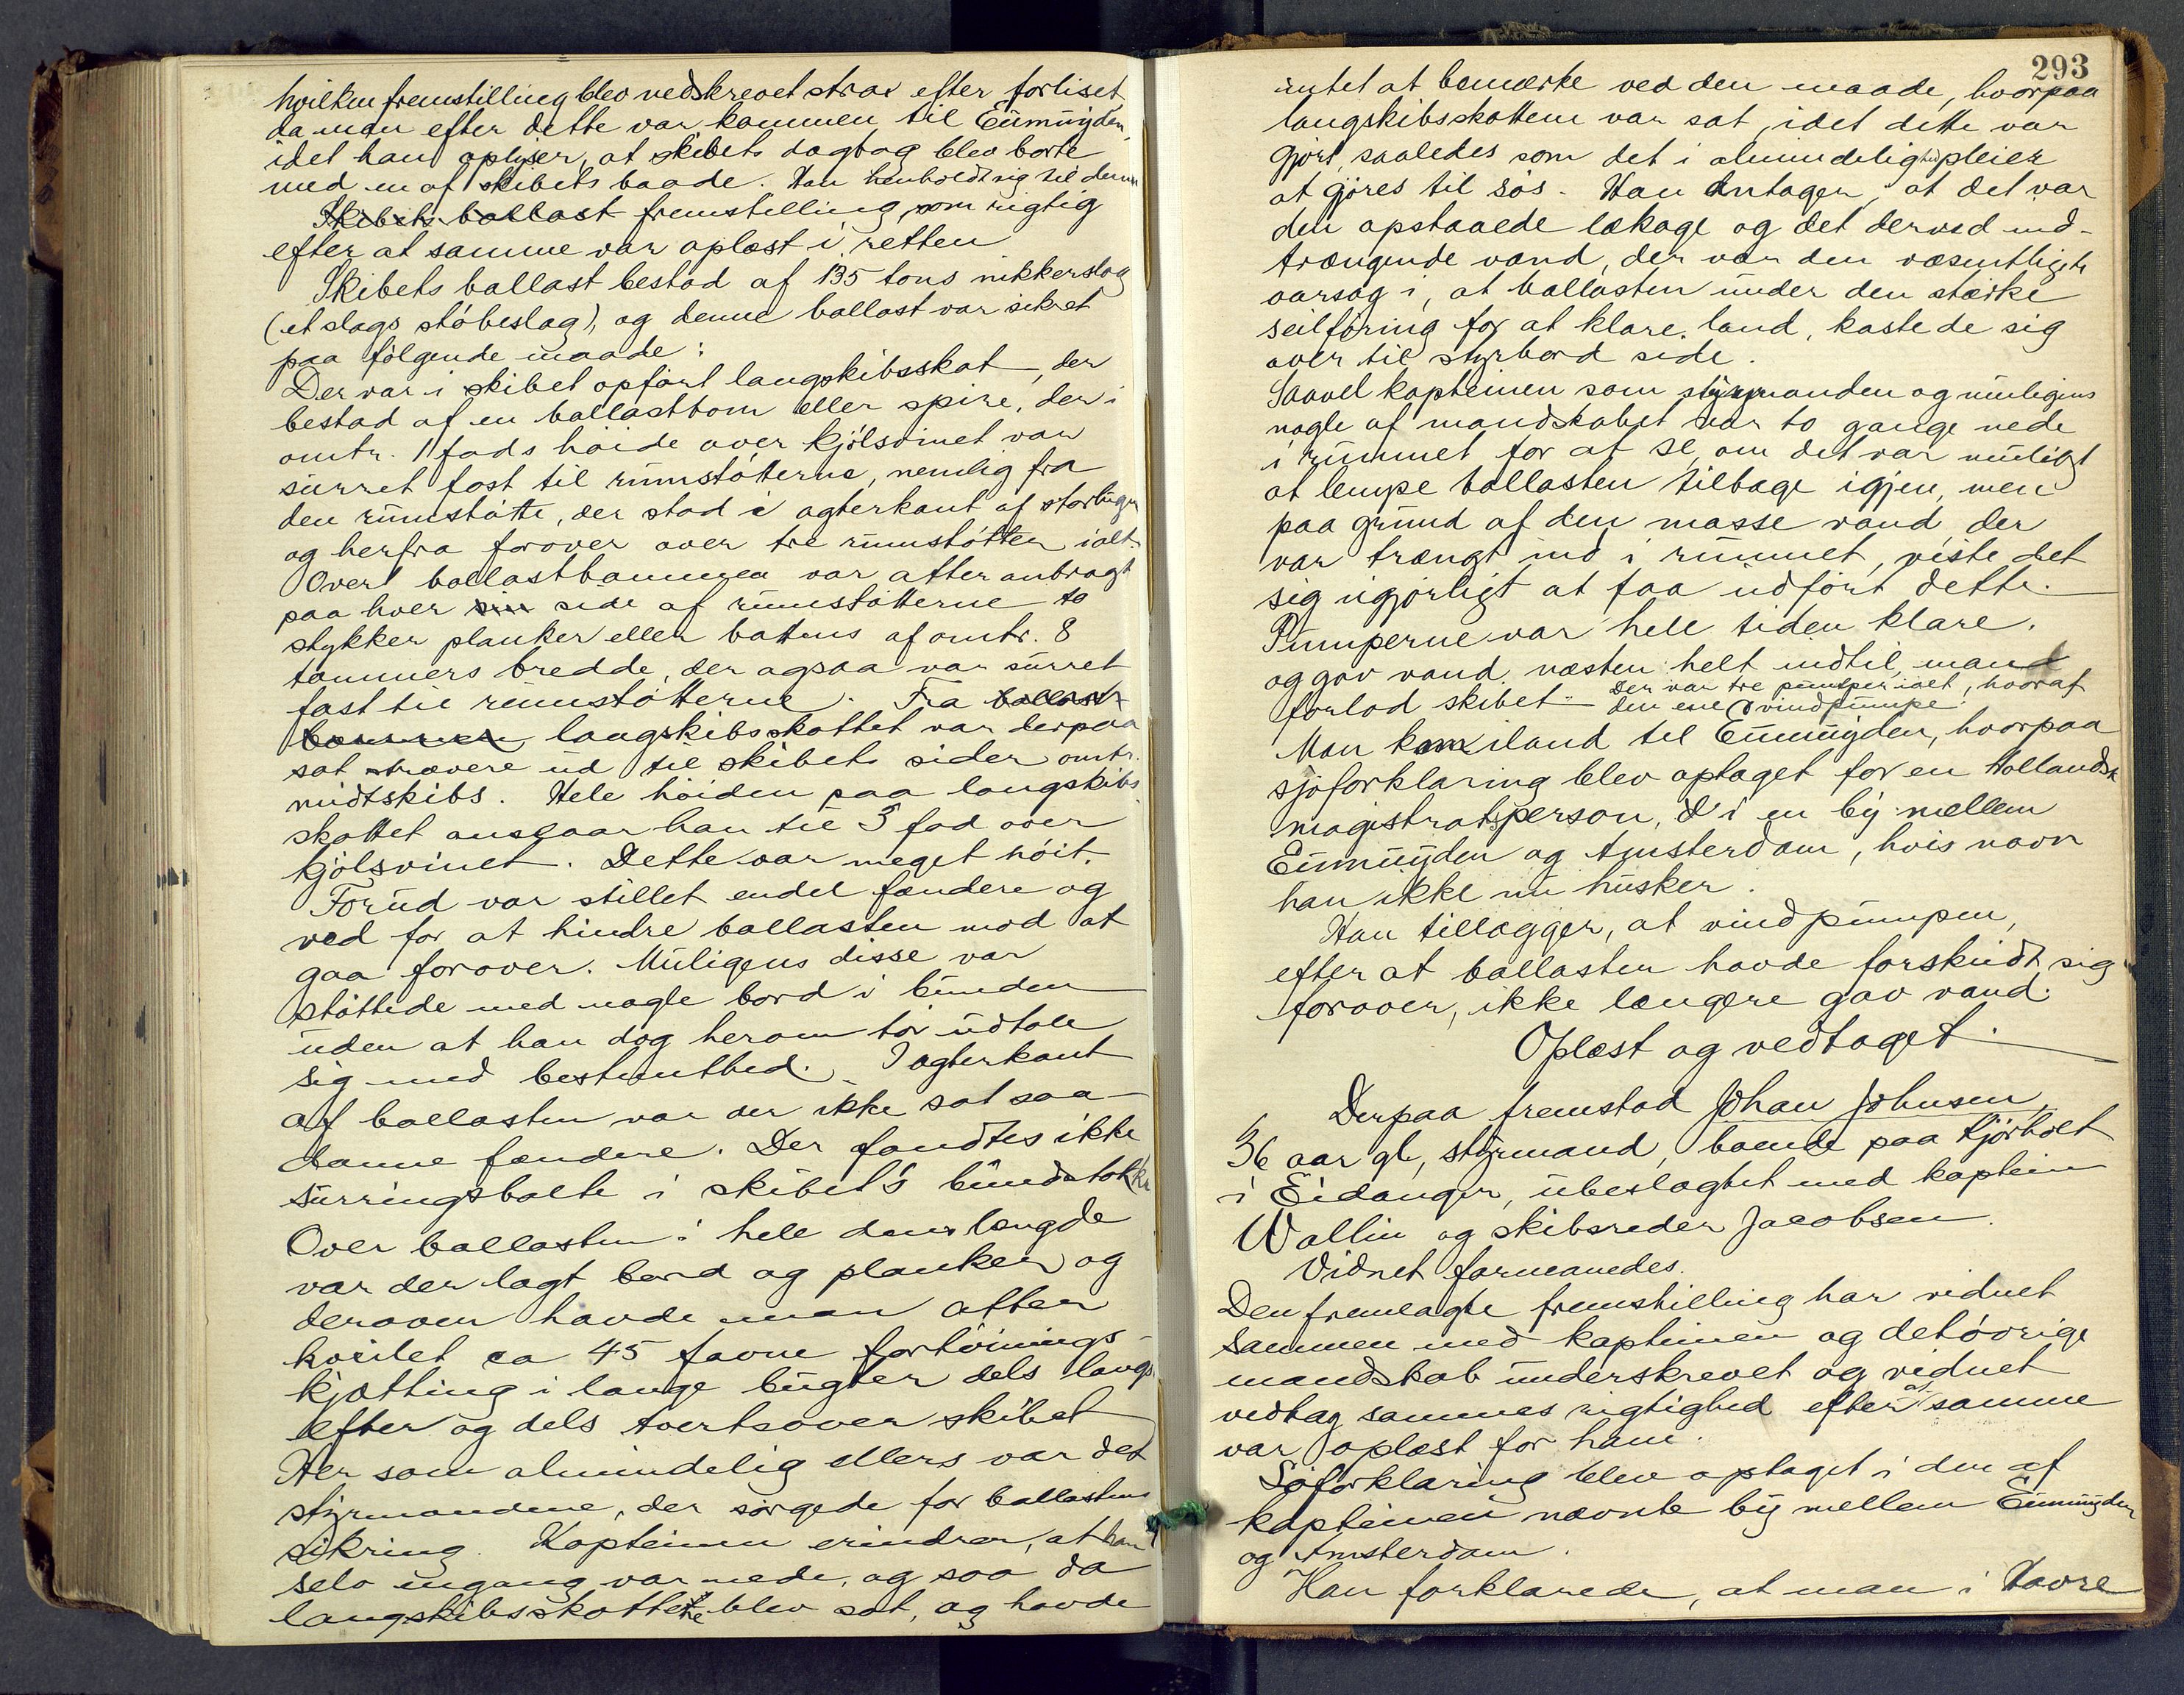 hvilken fremstilling blev nedskrevet strax efter forliset,
da man efter dette var kommen til Eümüyden,
idet han oplyser, at skibets dagbog blev borte
med en af skibets baade. Han henholdt sig til denne
Skibets ballast fremstilling som rigtig
efter at samme var oplæst i retten
Skibets ballast bestod af 135 tons nikkerslag
(et slags støbeslag), og denne ballast var sikret
paa følgende maade:
Der var i skibet opført langskibsskot, der
bestod af en ballastbom eller spire, der i
omtr. 1 fods høide over kjølsvinet var
surret fast til rumstøtterne, nemlig fra
den rumstøtte, der stod i agterkant af storlugen
og herfra forover over tre rumstøtter ialt.
Over ballastbommen var atter anbragt
paa hver sin side af rumstøtterne to
stykker planker eller battens af omtr. 8
tommers bredde, der ogsaa var surret
fast til rumstøtterne. Fra ballast
bommen langskibsskottet var derpaa
sat stravere ud til skibets sider omtr.
midtskibs. Hele høiden paa langskibs
skottet ansaaar han til 3 fod over
kjølsvinet. Dette var meget høit.
Forud var stillet endel fændere og
ved for at hindre ballasten mod at
gaa forover. Muligens disse var
støttede med nogle bord i bunden
uden at han dog herom tør udtale
sig med bestemthed. I agterkant
af ballasten var der ikke sat saa-
danne fændere. Der fandtes ikke
surringsbolte i skibet's bundstokke
Over ballasten i hele dens længde
var der lagt bord og planker og
derover havde man atter
kveilet ca 45 favne fortøinings-
kjætting i lange bugter dels langs
efter og dels tvertsover skibet
Her som almindelig ellers var det
styrmandene, der sørgede for ballastens
sikring. Kapteinen erindrer, at han
selv engang var nede, og saa da
langskibsskottene blev sat, og havde
293
intet at bemærke ved den maade, hvorpaa
langskibsskottene var sat, idet dette var
gjort saaledes som det i almindelighed pleier
at gjøres til søs. Han antager, at det var
den opstaaede lækage og det derved ind-
trængende vand, der var den væsentligste
aarsag i, at ballasten under den stærke
seilføring for at klare land, kastede sig
over til styrbord side.
Saavel kapteinen som styrmanden og muligens
nogle af mandskabet var to gange nede
i rummet for at se, om det var muligt
at lempe ballasten tilbage igjen, men
paa grund af den masse vand, der
var trængt ind i rummet, viste det
sig ugjørligt at faa udført dette.
Pumperne var hele tiden klare.
og gav vand næsten helt indtil mand
forlod skibet. Der var tre pumper ialt, hvoraf
den ene vindpumpe.
Man kom iland til Eümüyden, hvorpaa
sjøforklaring blev optaget for en Hollandsk
magistratsperson, i en by mellem
Eümüyden og Amsterdam, hvis navn
han ikke nu husker.
Han tillægger, at vindpumpen,
efter at ballasten havde forskudt sig
forover, ikke længere gav vand.
Oplæst og vedtaget.
Derpaa fremstod Johan Johnsen,
36 aar gl, styrmand, boende paa Kjørholt
i Eidanger, ubeslægtet med kaptein
Wallin og skibsreder Jacobsen.
Vidnet formanedes.
Den fremlagte fremstilling har vidnet
sammen med kapteinen og det øvrige
mandskab underskrevet og vidnet
vedtog sammes rigtighed efter at samme
var oplæst for ham.
Søforklaring blev optaget i den af
kapteinen nævnte by mellem Eümüyden
og Amsterdam.
Han forklarede, at man i Havre